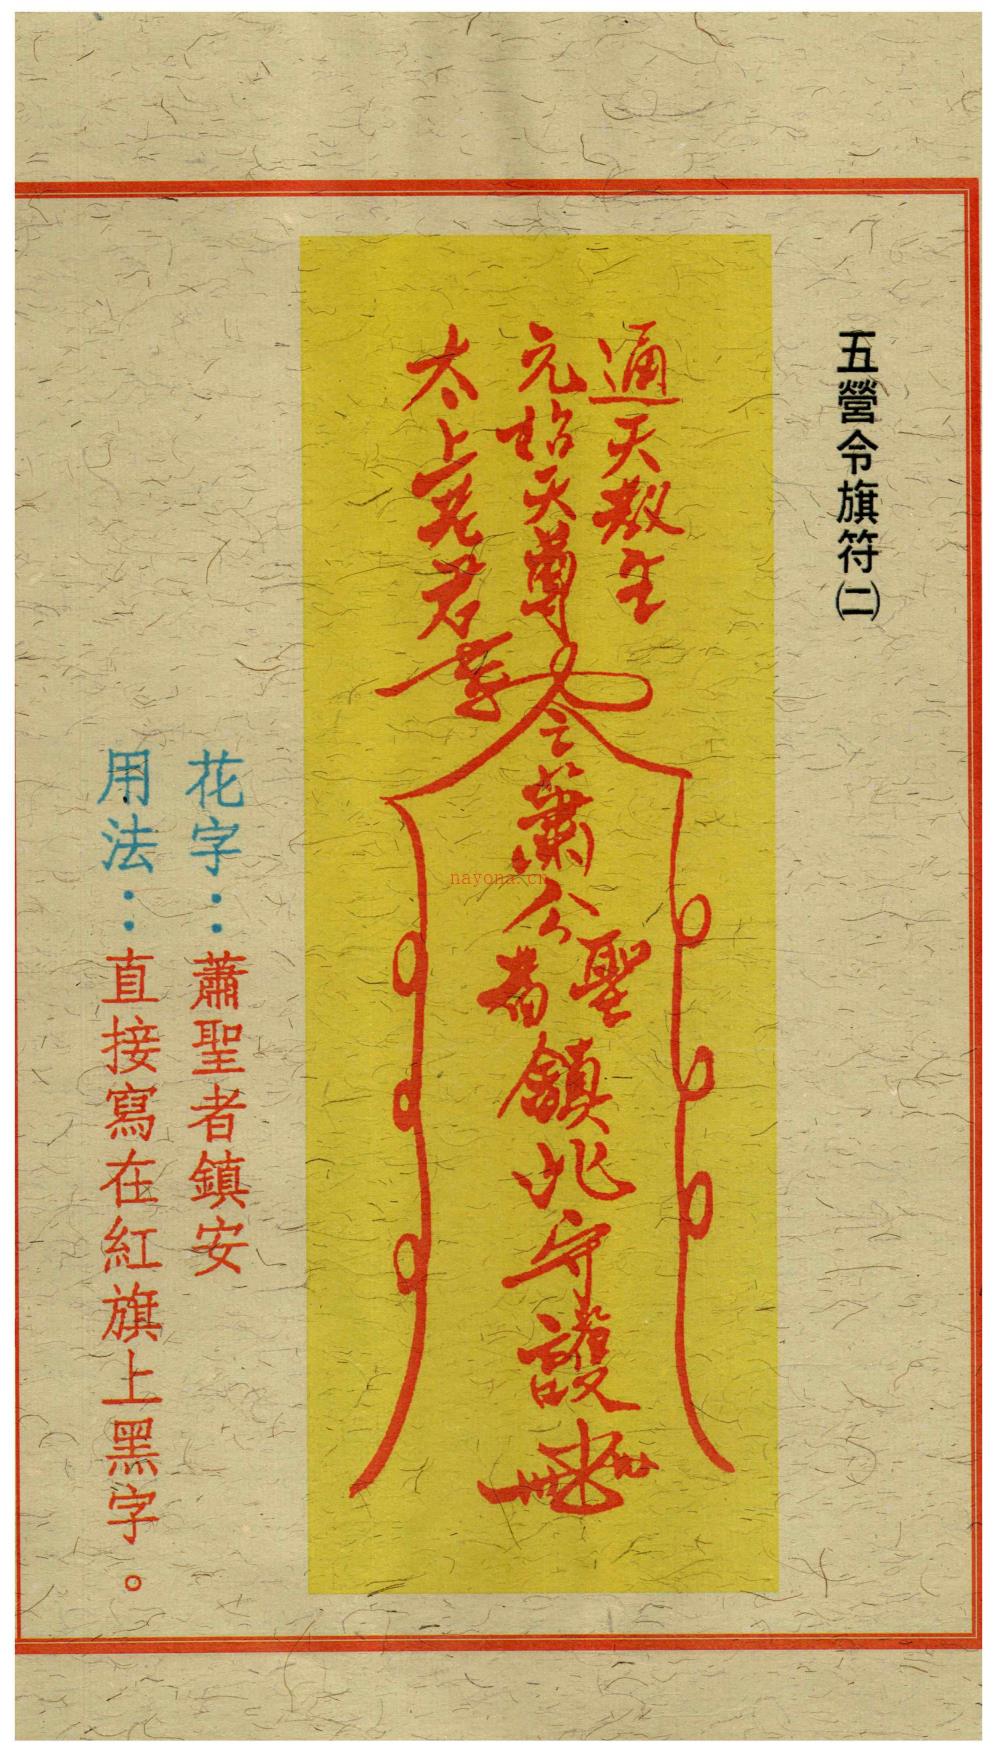 五營令旗符㈡
通天教主
元始天尊
太上老君
令
蕭公
聖者
鎮北守護
nayona.cn
花字：蕭聖者鎮安
用法：直接寫在紅旗上黑字。